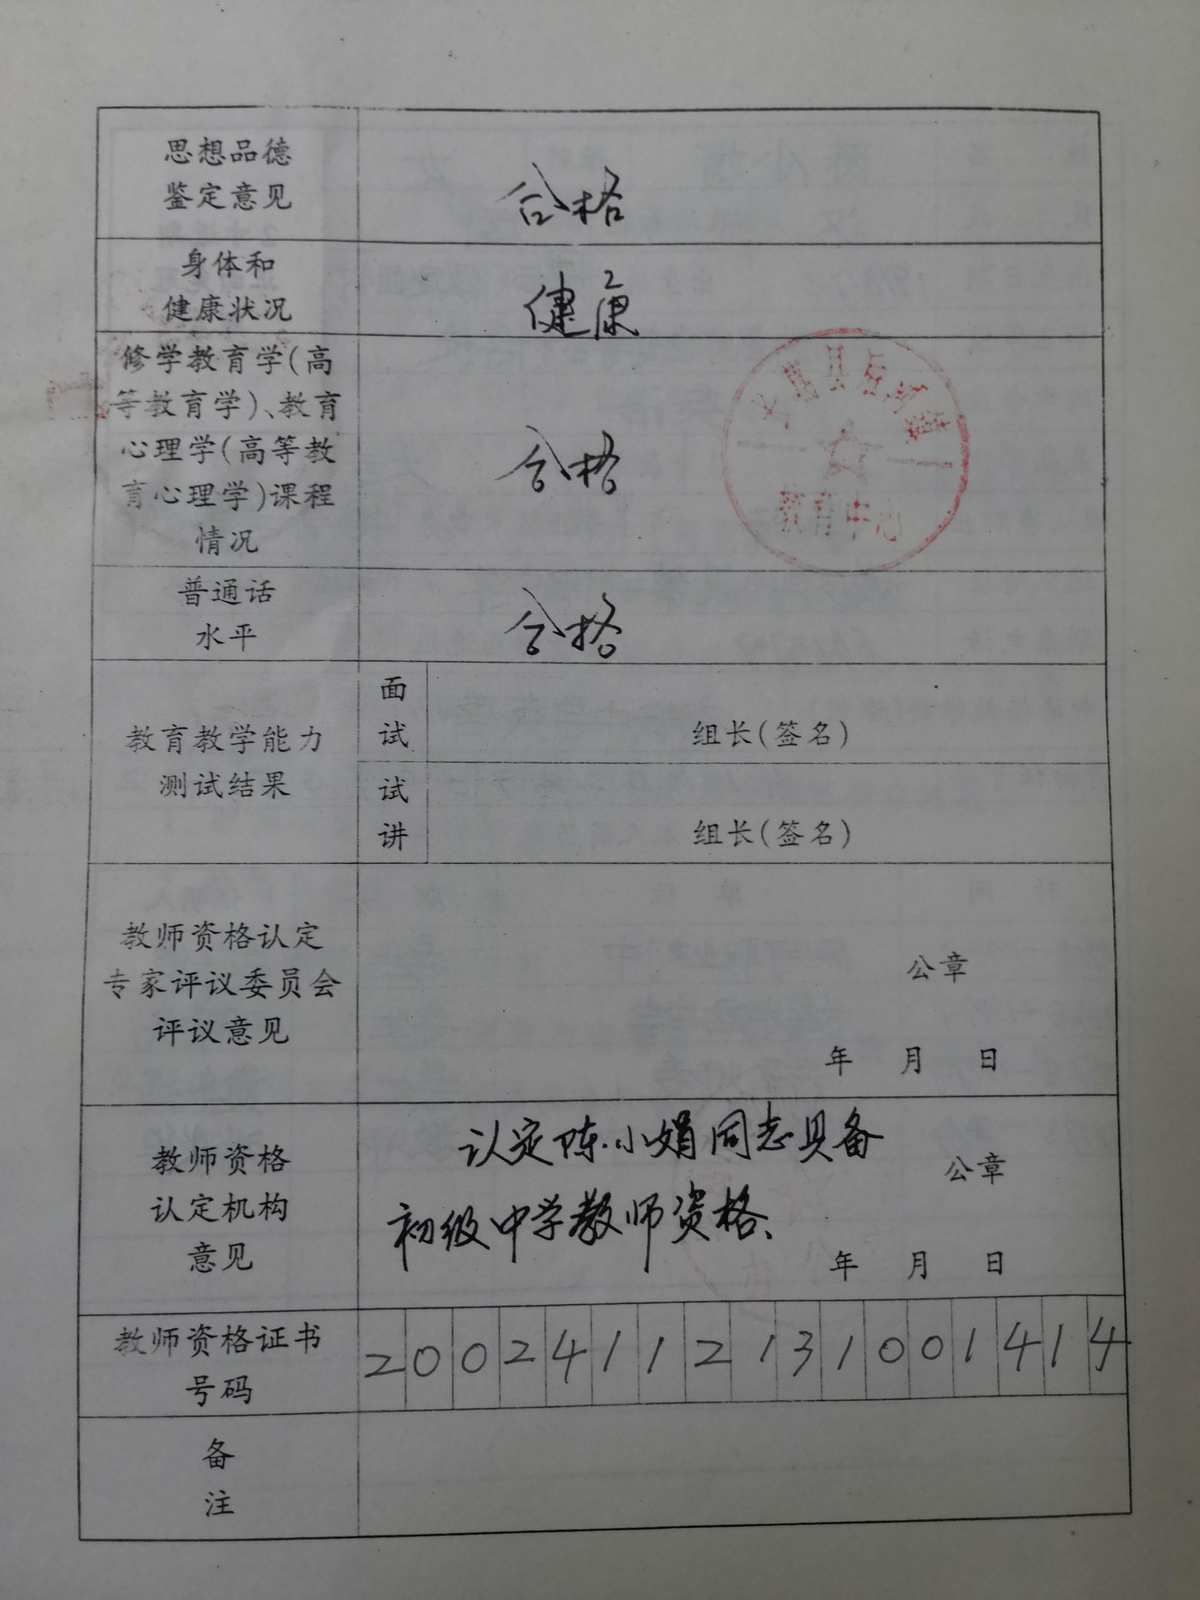 思想品德
鉴定意见
合格
身体和
健康状况
健康
修学教育学(高
等教育学)、教育
心理学(高等教
育心理学)课程
情况
合格
教育中心
普通话
水平
合格
教育教学能力
测试结果
面
试
组长(签名)
试
讲
组长(签名)
教师资格认定
专家评议委员会
评议意见
公章
年 月 日
教师资格
认定机构
意见
认定陈小娟同志具备
初级中学教师资格、
公章
年 月 日
教师资格证书
号码
20024112131001414
备
注